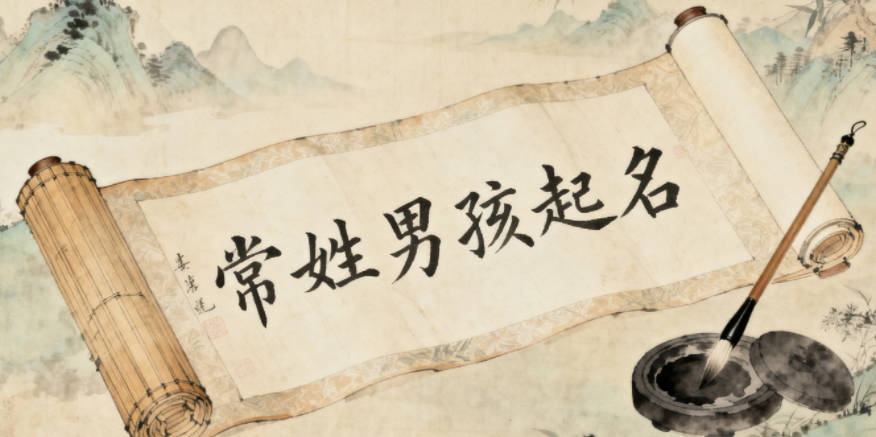 常姓男孩起名